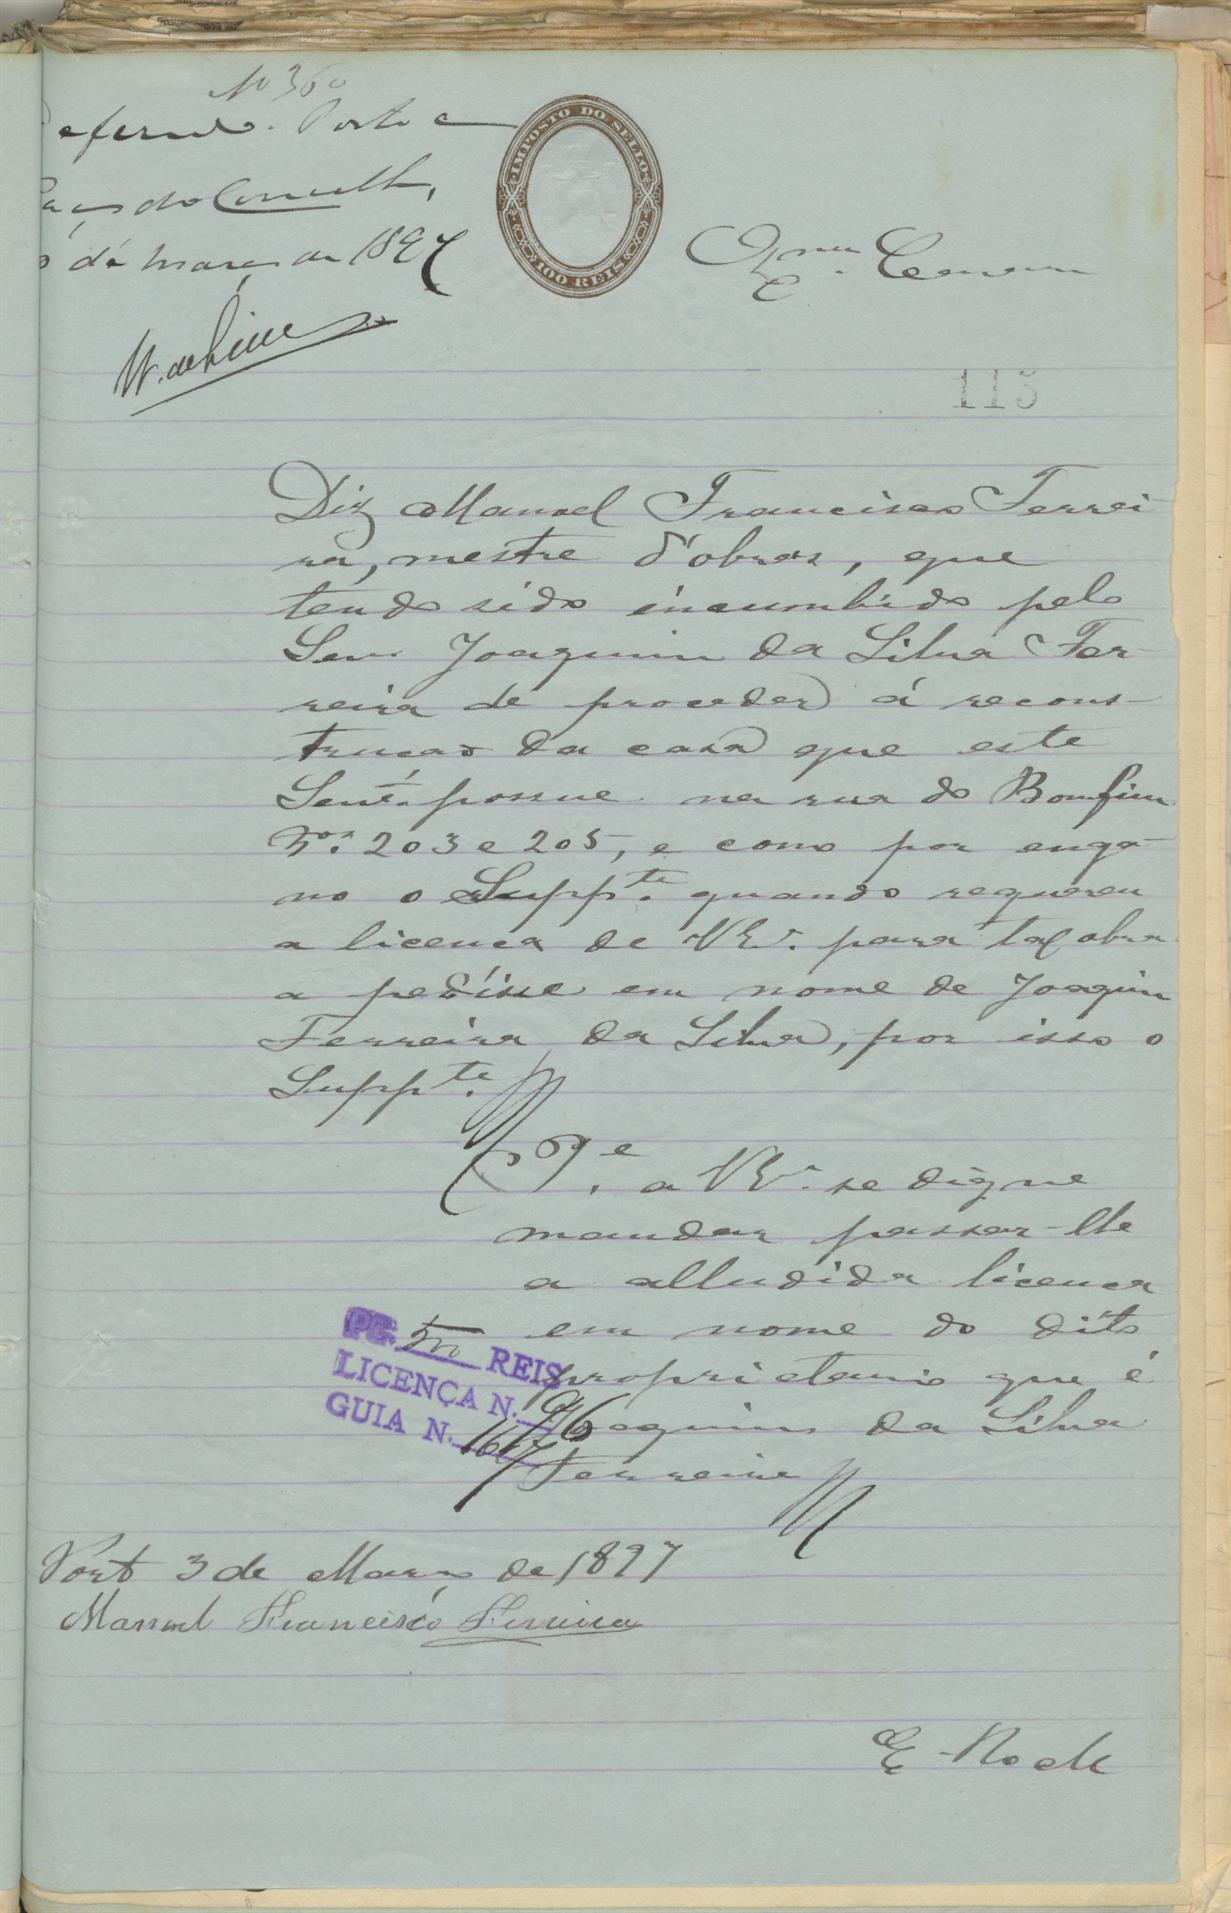 Nº 360
Deferido. Porto e
Paços do Concelho,
de março de 1897
IMPOSTO DO SELLO
100 REIS
Exma. Camara
115
Diz Manoel Francisco Ferrei-
ra, mestre d'obras, que
tendo sido incumbido pelo
Senr. Joaquim da Silva Fer-
reira de proceder á recons-
trucao da casa que este
Senr. possue na rua do Bomfim
Nos. 203 e 205, e como por enga-
no o Suppte. quando requereu
a licenca de VEx. para tal obra
a pedisse em nome de Joaquim
Ferreira da Silva, por isso o
Suppte.
Pe. a VEx. se digne
mandar passar-lhe
a alludida licenca
em nome do dito
proprietario que é
Joaquim da Silva
Ferreira
PG. 500 REIS
LICENÇA N.
GUIA N. 167
Port 3 de Março de 1897
Manoel Francisco Ferreira
E R Mce